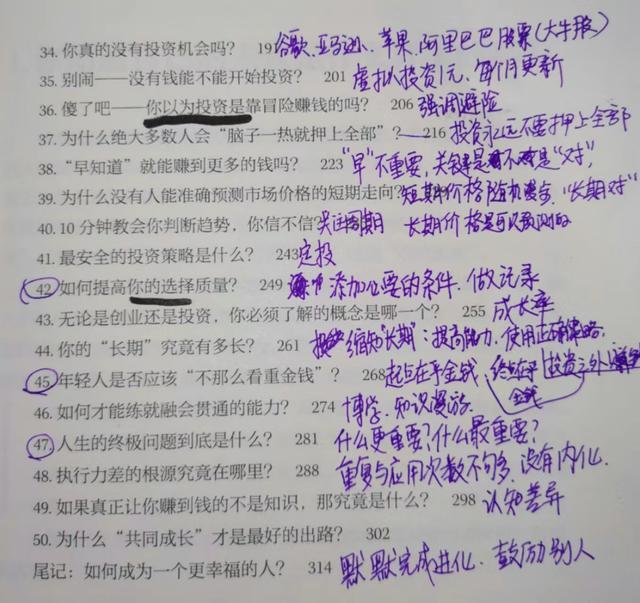 34. 你真的没有投资机会吗? 191 谷歌、亚马逊、苹果、阿里巴巴股票(大牛股)
35. 别闹——没有钱能不能开始投资? 201 虚拟投资1元、每个月更新
36. 傻了吧——你以为投资是靠冒险赚钱的吗? 206 强调避险
37. 为什么绝大多数人会“脑子一热就押上全部”? 216 投资永远不要押上全部
38. “早知道”就能赚到更多的钱吗? 223 “早”不重要,关键是 是“对”,
39. 为什么没有人能准确预测市场价格的短期走向? 短期价格随机漫步,“长期对”
40. 10 分钟教会你判断趋势,你信不信? 关注周期 长期价格是可以预测的
41. 最安全的投资策略是什么? 243 定投
42. 如何提高你的选择质量? 249 添加必要的条件、做记录
43. 无论是创业还是投资,你必须了解的概念是哪一个? 255 成长率
44. 你的“长期”究竟有多长? 261 缩短“长期”:提高能力、使用正确策略.
45. 年轻人是否应该“不那么看重金钱”? 268 起点在乎金钱、终点在乎 投资之外
金钱
46. 如何才能练就融会贯通的能力? 274 博学、知识漫游
47. 人生的终极问题到底是什么? 281 什么更重要?什么最重要?
48. 执行力差的根源究竟在哪里? 288 重复与应用次数不够多,没有内化.
49. 如果真正让你赚到钱的不是知识,那究竟是什么? 298 认知差异
50. 为什么“共同成长”才是最好的出路? 302
尾记:如何成为一个更幸福的人? 314 默默完成进化、鼓励别人